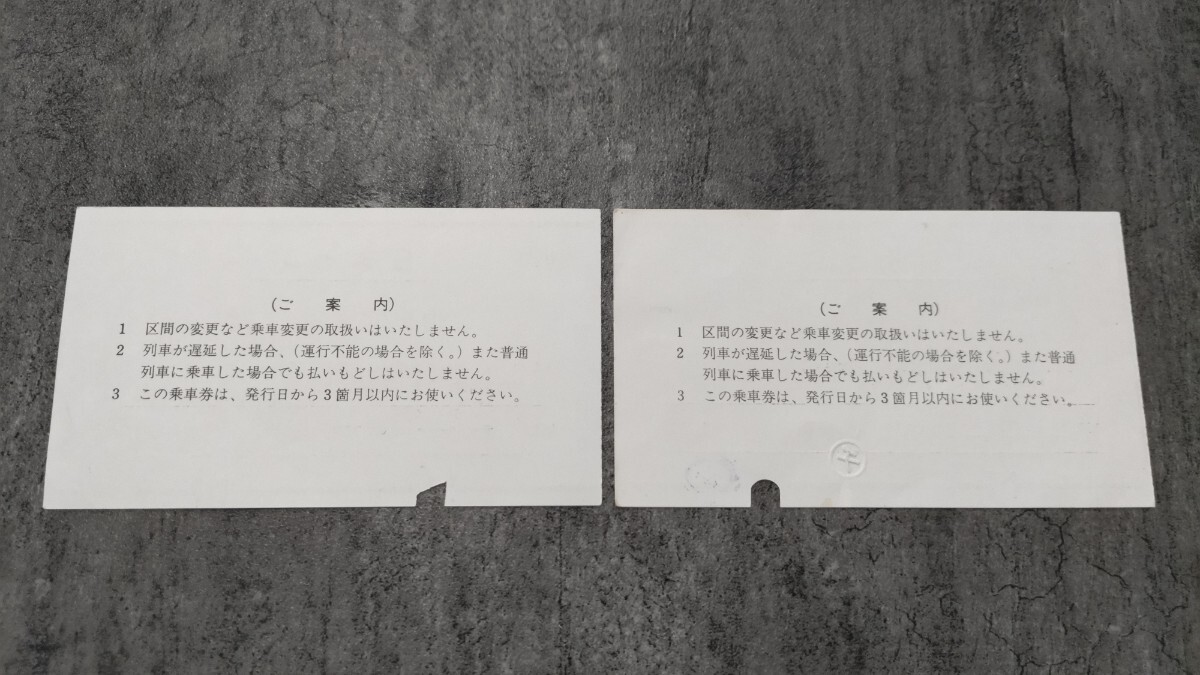 (ご　案　内)
1 区間の変更など乗車変更の取扱いはいたしません。
2 列車が遅延した場合、(運行不能の場合を除く。) また普通
列車に乗車した場合でも払いもどしはいたしません。
3 この乗車券は、発行日から3箇月以内にお使いください。
(ご　案　内)
1 区間の変更など乗車変更の取扱いはいたしません。
2 列車が遅延した場合、(運行不能の場合を除く。) また普通
列車に乗車した場合でも払いもどしはいたしません。
3 この乗車券は、発行日から3箇月以内にお使いください。